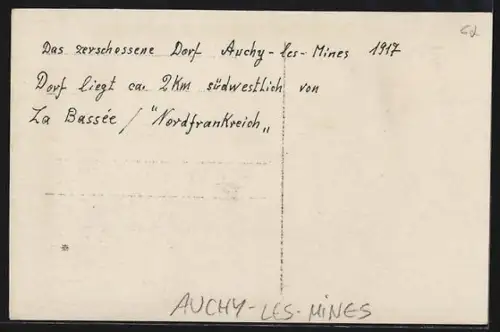 Das zerschossene Dorf Auchy-les-Mines 1917
Dorf liegt ca. 2Km südwestlich von
La Bassée / "Nordfrankreich„
AUCHY-LES-MINES